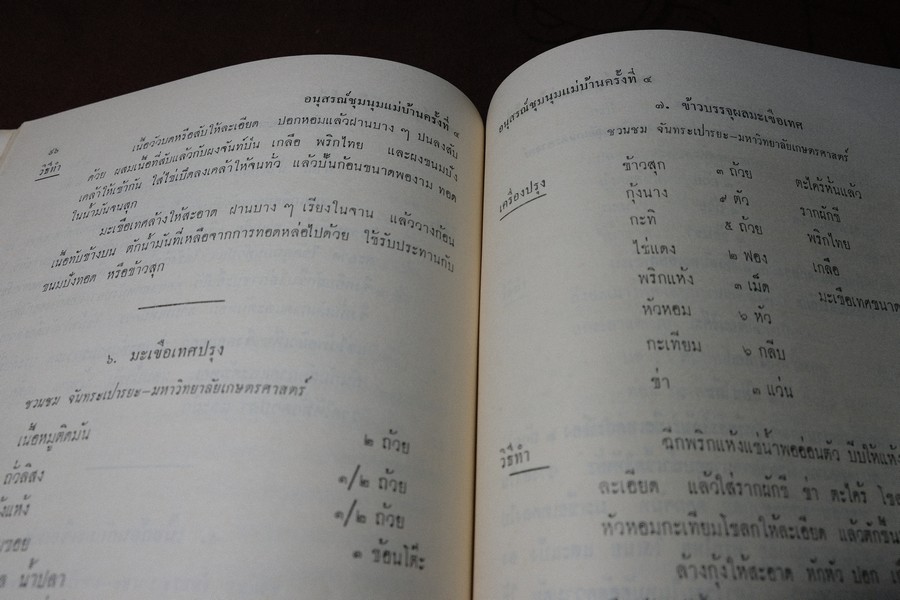 อนุสรณ์ชุมนุมแม่บ้านครั้งที่ ๔
๔๖
วิธีทำ
เนื้อวัวบดหรือสับให้ละเอียด ปอกหอมแล้วฝานบาง ๆ ปนลงสับ
ด้วย ผสมเนื้อที่สับแล้วกับผงจันทน์ป่น เกลือ พริกไทย และผงขนมปัง
เคล้าให้เข้ากัน ใส่ไข่เป็ดลงเคล้าให้จนทั่ว แล้วปั้นก้อนขนาดพองาม ทอด
ในน้ำมันจนสุก
มะเขือเทศล้างให้สะอาด ฝานบาง ๆ เรียงในจาน แล้ววางก้อน
เนื้อทับข้างบน ตักน้ำมันที่เหลือจากการทอดหล่อไปด้วย ใช้รับประทานกับ
ขนมปังทอด หรือข้าวสุก
๖. มะเขือเทศปรุง
ชวนชม จันทระเปารยะ–มหาวิทยาลัยเกษตรศาสตร์
เนื้อหมูติดมัน ๒ ถ้วย
ถั่วลิสง ๑/๒ ถ้วย
แห้ง ๑/๒ ถ้วย
ซอย ๑ ช้อนโต๊ะ
น้ำปลา
อนุสรณ์ชุมนุมแม่บ้านครั้งที่ ๔
๗. ข้าวบรรจุผลมะเขือเทศ
ชวนชม จันทระเปารยะ–มหาวิทยาลัยเกษตรศาสตร์
เครื่องปรุง
ข้าวสุก ๓ ถ้วย ตะไคร้หั่นแล้ว
กุ้งนาง ๙ ตัว รากผักชี
กะทิ ๕ ถ้วย พริกไทย
ไข่แดง ๒ ฟอง เกลือ
พริกแห้ง ๓ เม็ด มะเขือเทศขนาด
หัวหอม ๖ หัว
กะเทียม ๖ กลีบ
ข่า ๓ แว่น
วิธีทำ
ฉีกพริกแห้งแช่น้ำพออ่อนตัว บีบให้แห้ง
ละเอียด แล้วใส่รากผักชี ข่า ตะไคร้
หัวหอมกะเทียมโขลกให้ละเอียด แล้วตักขึ้น
ล้างกุ้งให้สะอาด หักหัว ปอก